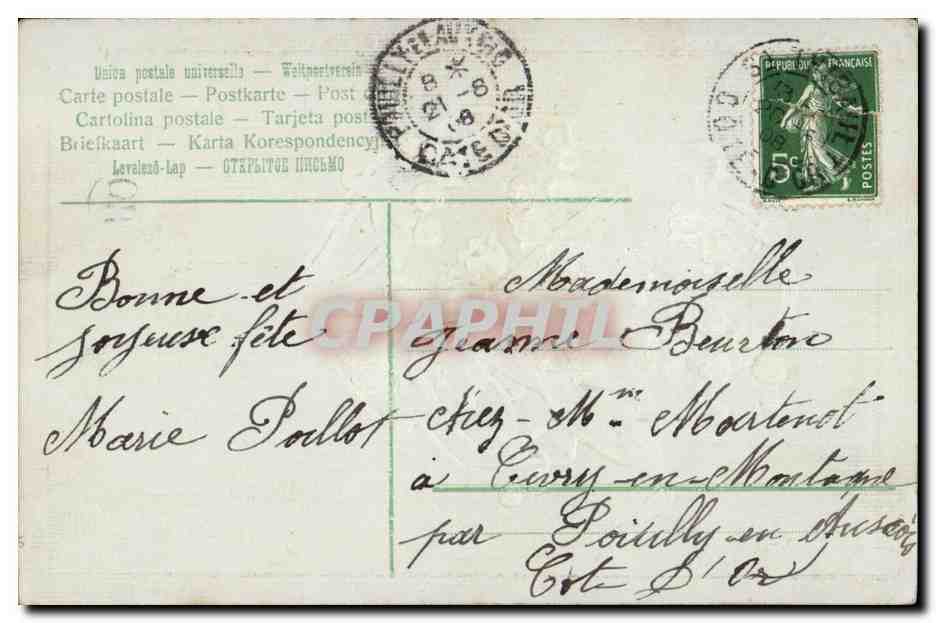 Unica postale universelle — Weltpostverein
Carte postale — Postkarte — Post
Cartolina postale — Tarjeta post
Briefkaart — Karta Korespondency
Levelező-Lap — ОТКРЫТОЕ ПИСЬМО
8 * 8
21 - 6
08
COTE D'OR
REPUBLIQUE FRANÇAISE
5c
POSTES
CPAPHIL
Bonne et
joyeuse fête
Marie Poillot
Mademoiselle
Jeanne Beurton
chez Mme Martenot
à Civry-en-Montagne
par Pouilly en Auxois
Cote d'Or